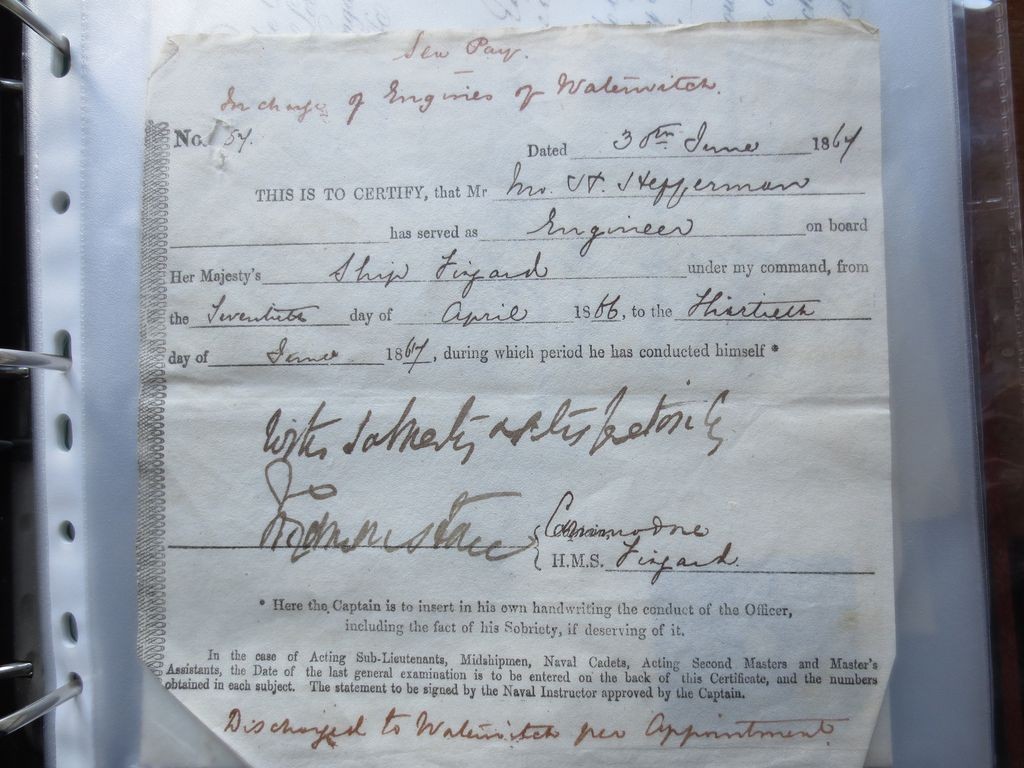 Sea Pay.
In charge of Engines of Waterwitch.
No. 57.
Dated 30th June 1867
THIS IS TO CERTIFY, that Mr Mr. H. Heffernan
has served as Engineer on board
Her Majesty's Ship Fisgard under my command, from
the Twentieth day of April 1866, to the Thirtieth
day of June 1867, during which period he has conducted himself *
With Sobriety & satisfactorily
Commodore
H.M.S. Fisgard.
* Here the Captain is to insert in his own handwriting the conduct of the Officer,
including the fact of his Sobriety, if deserving of it.
In the case of Acting Sub-Lieutenants, Midshipmen, Naval Cadets, Acting Second Masters and Master's
Assistants, the Date of the last general examination is to be entered on the back of this Certificate, and the numbers
obtained in each subject. The statement to be signed by the Naval Instructor approved by the Captain.
Discharged to Waterwitch per Appointment